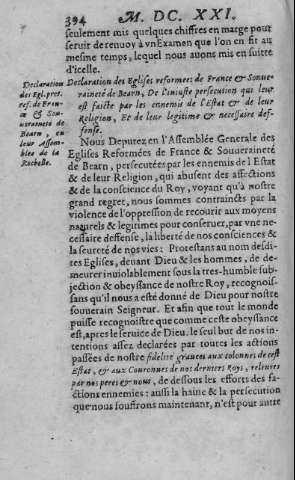 394 M. DC. XXI.
seulement mis quelques chiffres en marge pour
seruir de renuoy à vn Examen que l'on en fit au
mesme temps, lequel nous auons mis en suitte
d'icelle.
Declaration
des Egl. pret.
ref. de Fran-
ce & Sou-
ueraineté de
Bearn, en
leur Assem-
blee de la
Rochelle.
Declaration des Eglises reformees de France & Souue-
raineté de Bearn, De l'iniuste persecution qui leur
est faicte par les ennemis de l'Estat & de leur
Religion, Et de leur legitime & necessaire def-
fense.
Nous Deputez en l'Assemblée Generale des
Eglises Reformées de France & Souueraineté
de Bearn, persecutées par les ennemis de l'Estat
& de leur Religion, qui abusent des affections
& de la conscience du Roy, voyant qu'à nostre
grand regret, nous sommes contraincts par la
violence de l'oppression de recourir aux moyens
naturels & legitimes pour conseruer, par vne ne-
cessaire deffense, la liberté de nos consciences &
la seureté de nos vies: Protestant au nom desdi-
tes Eglises, deuant Dieu & les hommes, de de-
meurer inuiolablement sous la tres-humble sub-
jection & obeyssance de nostre Roy, recognois-
sans qu'il nous a esté donné de Dieu pour nostre
souuerain Seigneur. Et afin que tout le monde
puisse recognoistre que comme ceste obeyssance
est, apres le seruice de Dieu, le seul but de nos in-
tentions assez declarées par toutes les actions
passées de nostre fidelité grauees aux colonnes de cest
Estat, & aux Couronnes de nos derniers Roys, releuees
par nos peres & nous, de dessous les efforts des fa-
ctions ennemies: aussi la haine & la persecution
que nous souffrons maintenant, n'est pour autre